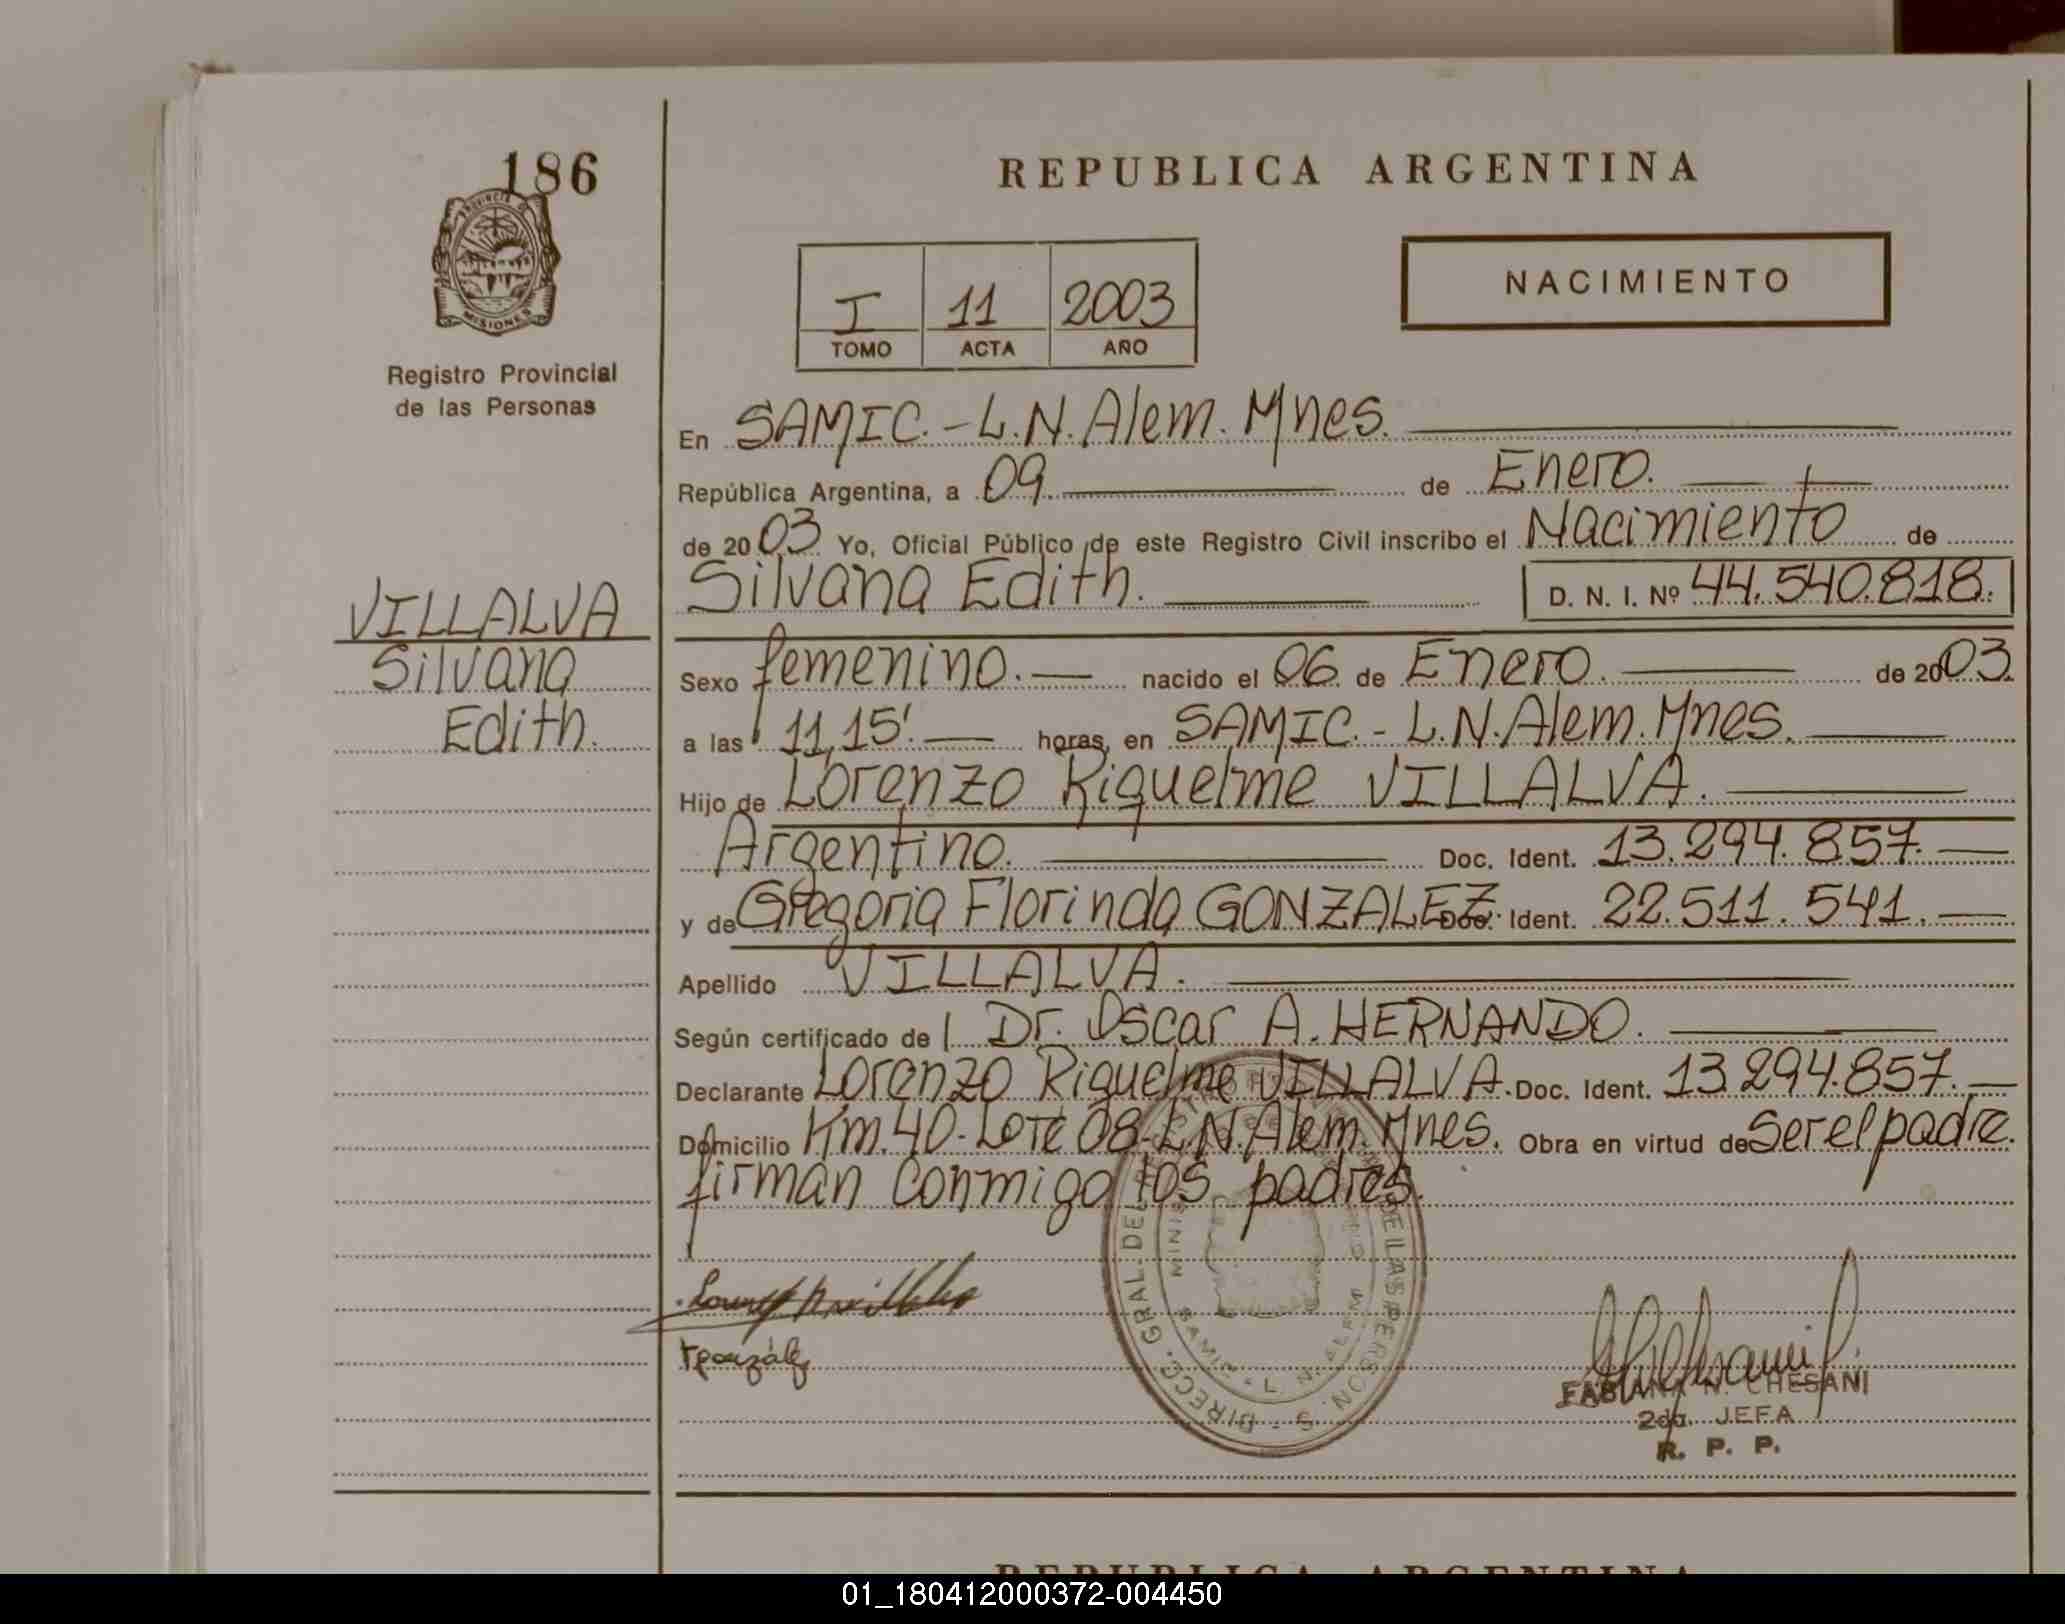 186
PROVINCIA DE
MISIONES
Registro Provincial
de las Personas
VILLALVA
Silvana
Edith.
REPUBLICA ARGENTINA
NACIMIENTO
I 11 2003
TOMO ACTA AÑO
En SAMIC.-L.N.Alem.Mnes.
República Argentina, a 09 de Enero.
de 2003 Yo, Oficial Público de este Registro Civil inscribo el Nacimiento de
Silvana Edith. D. N. I. Nº 44.540.818.
Sexo femenino. nacido el 06 de Enero. de 2003.
a las 11,15'. horas, en SAMIC.-L.N.Alem.Mnes.
Hijo de Lorenzo Riquelme VILLALVA.
Argentino. Doc. Ident. 13.294.857.
y de Gregoria Florinda GONZALEZ. Doc. Ident. 22.511.541.
Apellido VILLALVA.
Según certificado de Dr. Oscar A. HERNANDO.
Declarante Lorenzo Riquelme VILLALVA. Doc. Ident. 13.294.857.
Domicilio Km.40-Lote 08-L.N.Alem.Mnes. Obra en virtud de Ser el padre.
firman conmigo los padres.
DIRECC. GRAL. DEL DE LAS PERSONAS
SAMIC - L. N. ALEM
FABIANA N. CHESANI
2da. JEFA
R. P. P.
REPUBLICA ARGENTINA
01_180412000372-004450